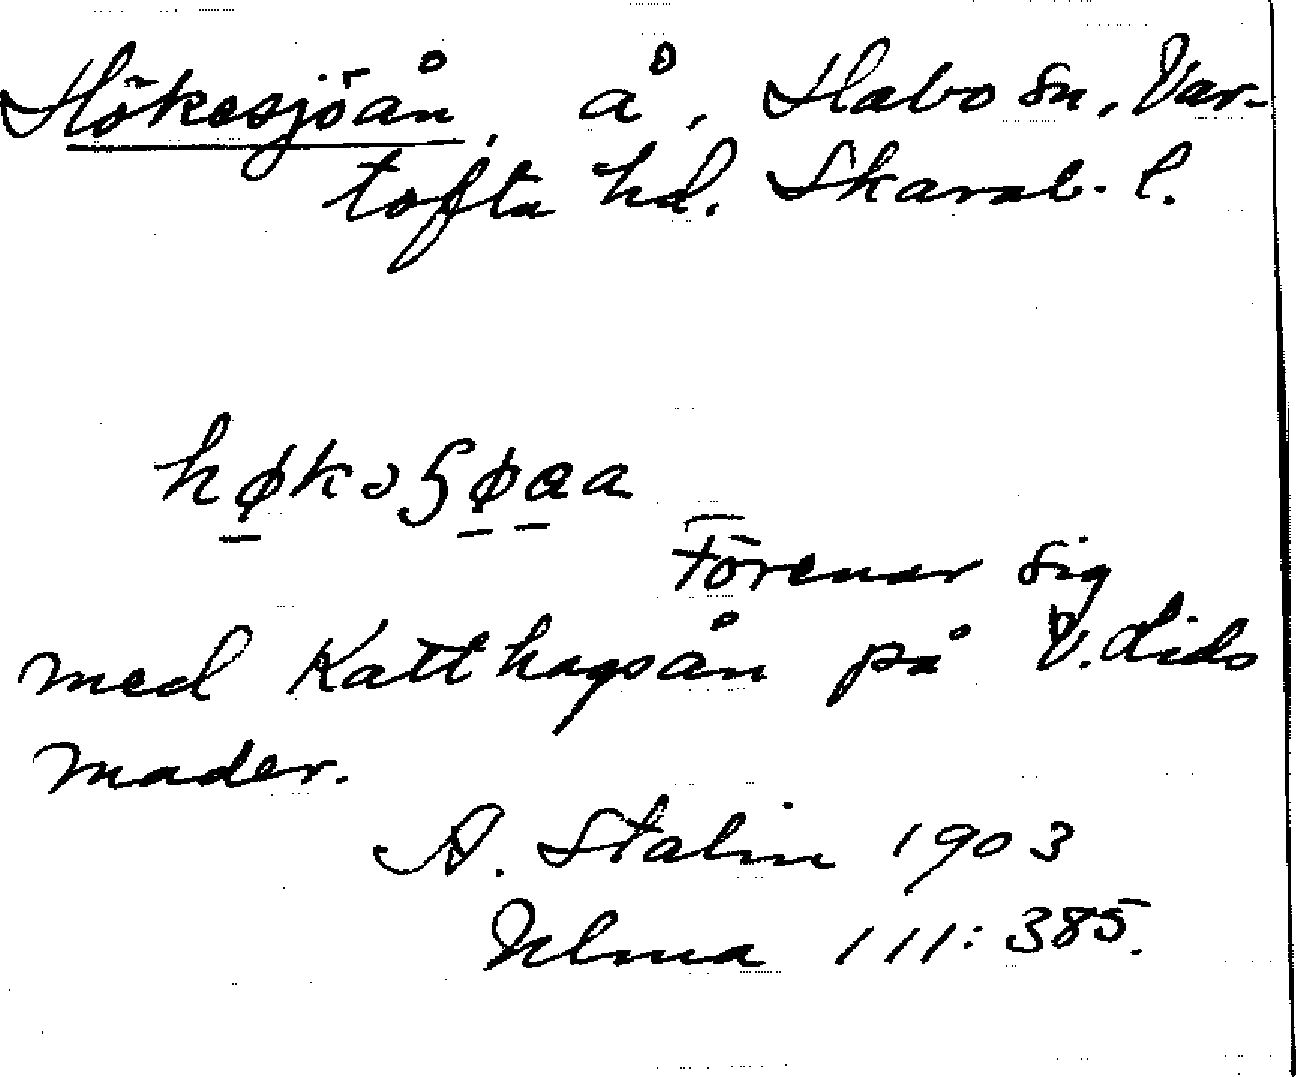 Hökesjöån, å, Habo sn, Var-
tofta hd. Skarab. l.
Förenar sig
med Katthagsån på V. Lids
mader.
A. Stalin 1903
Ulma 111:385.